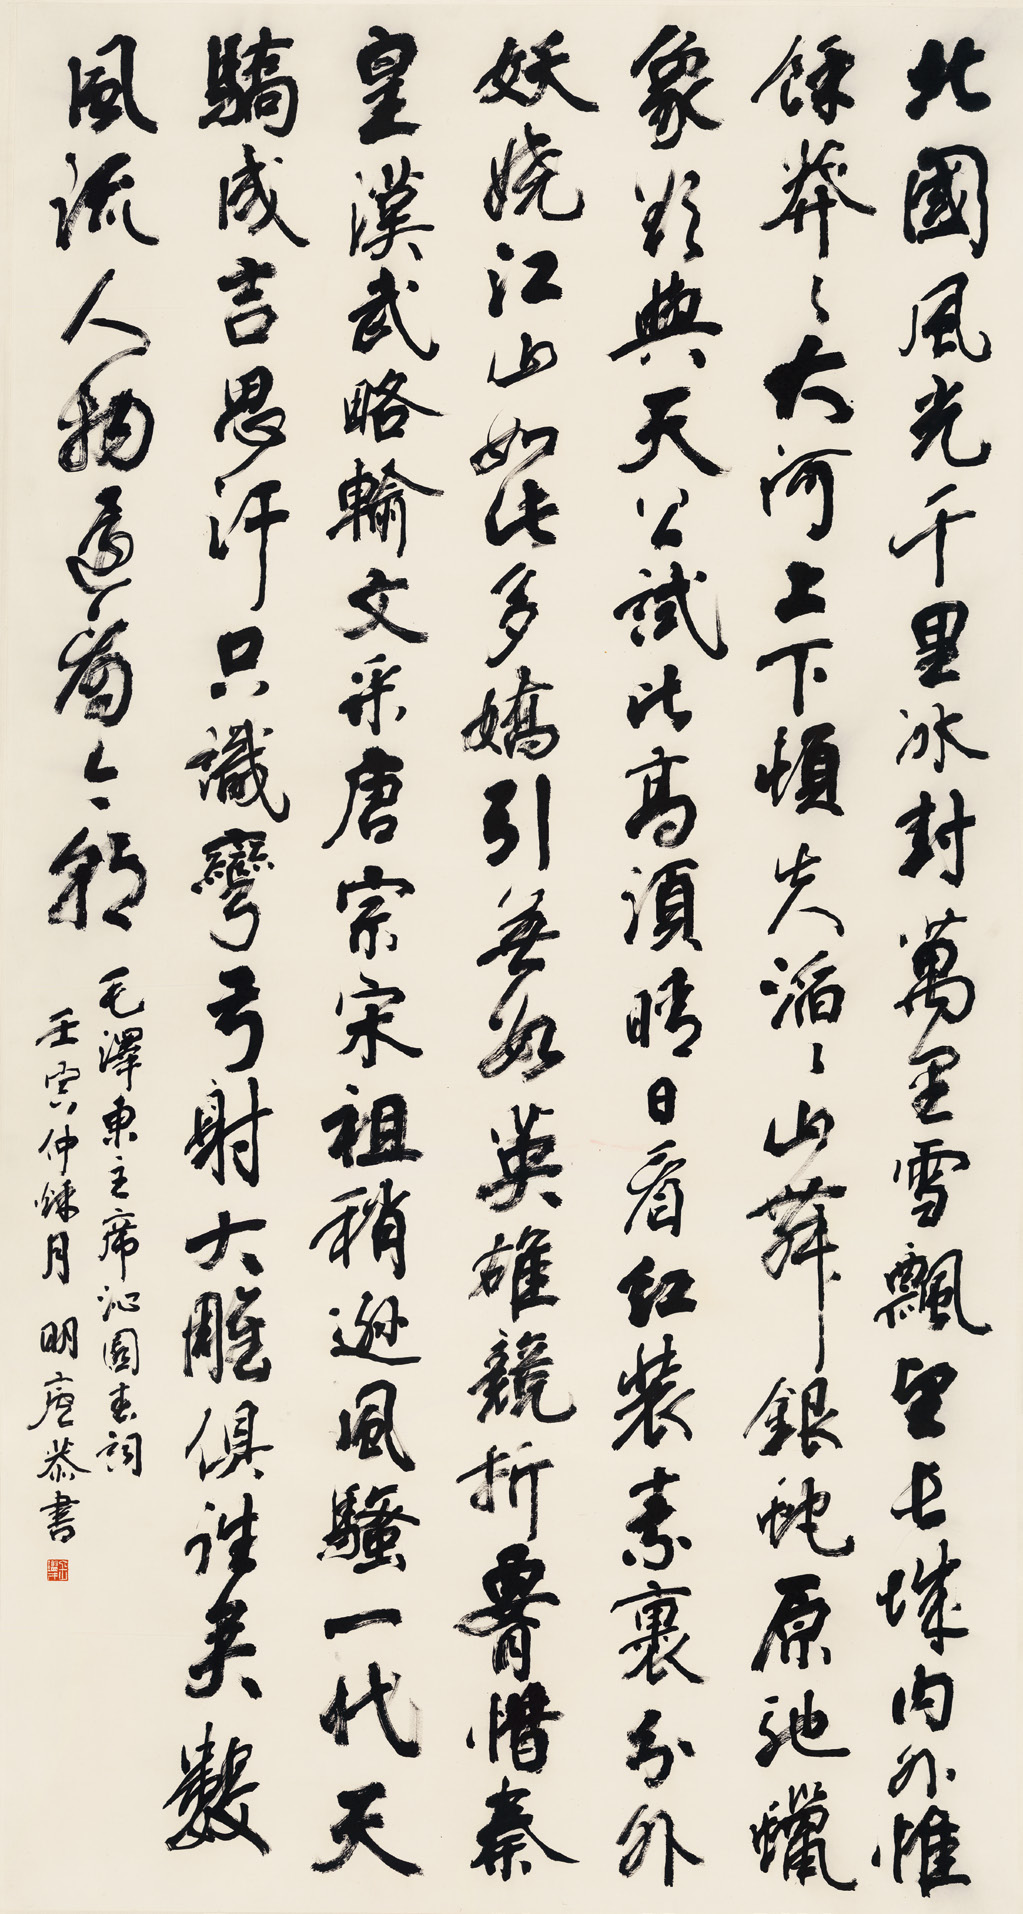 北國風光千里冰封萬里雪飄望長城內外惟
餘莽〻大河上下頓失滔〻山舞銀蛇原馳蠟
象欲與天公試比高須晴日看紅裝素裹分外
妖嬈江山如此多嬌引無數英雄競折腰惜秦
皇漢武略輸文采唐宗宋祖稍遜風騷一代天
驕成吉思汗只識彎弓射大雕俱往矣數
風流人物還看今朝
毛澤東主席沁園春詞
壬寅仲秋月 明 恭書